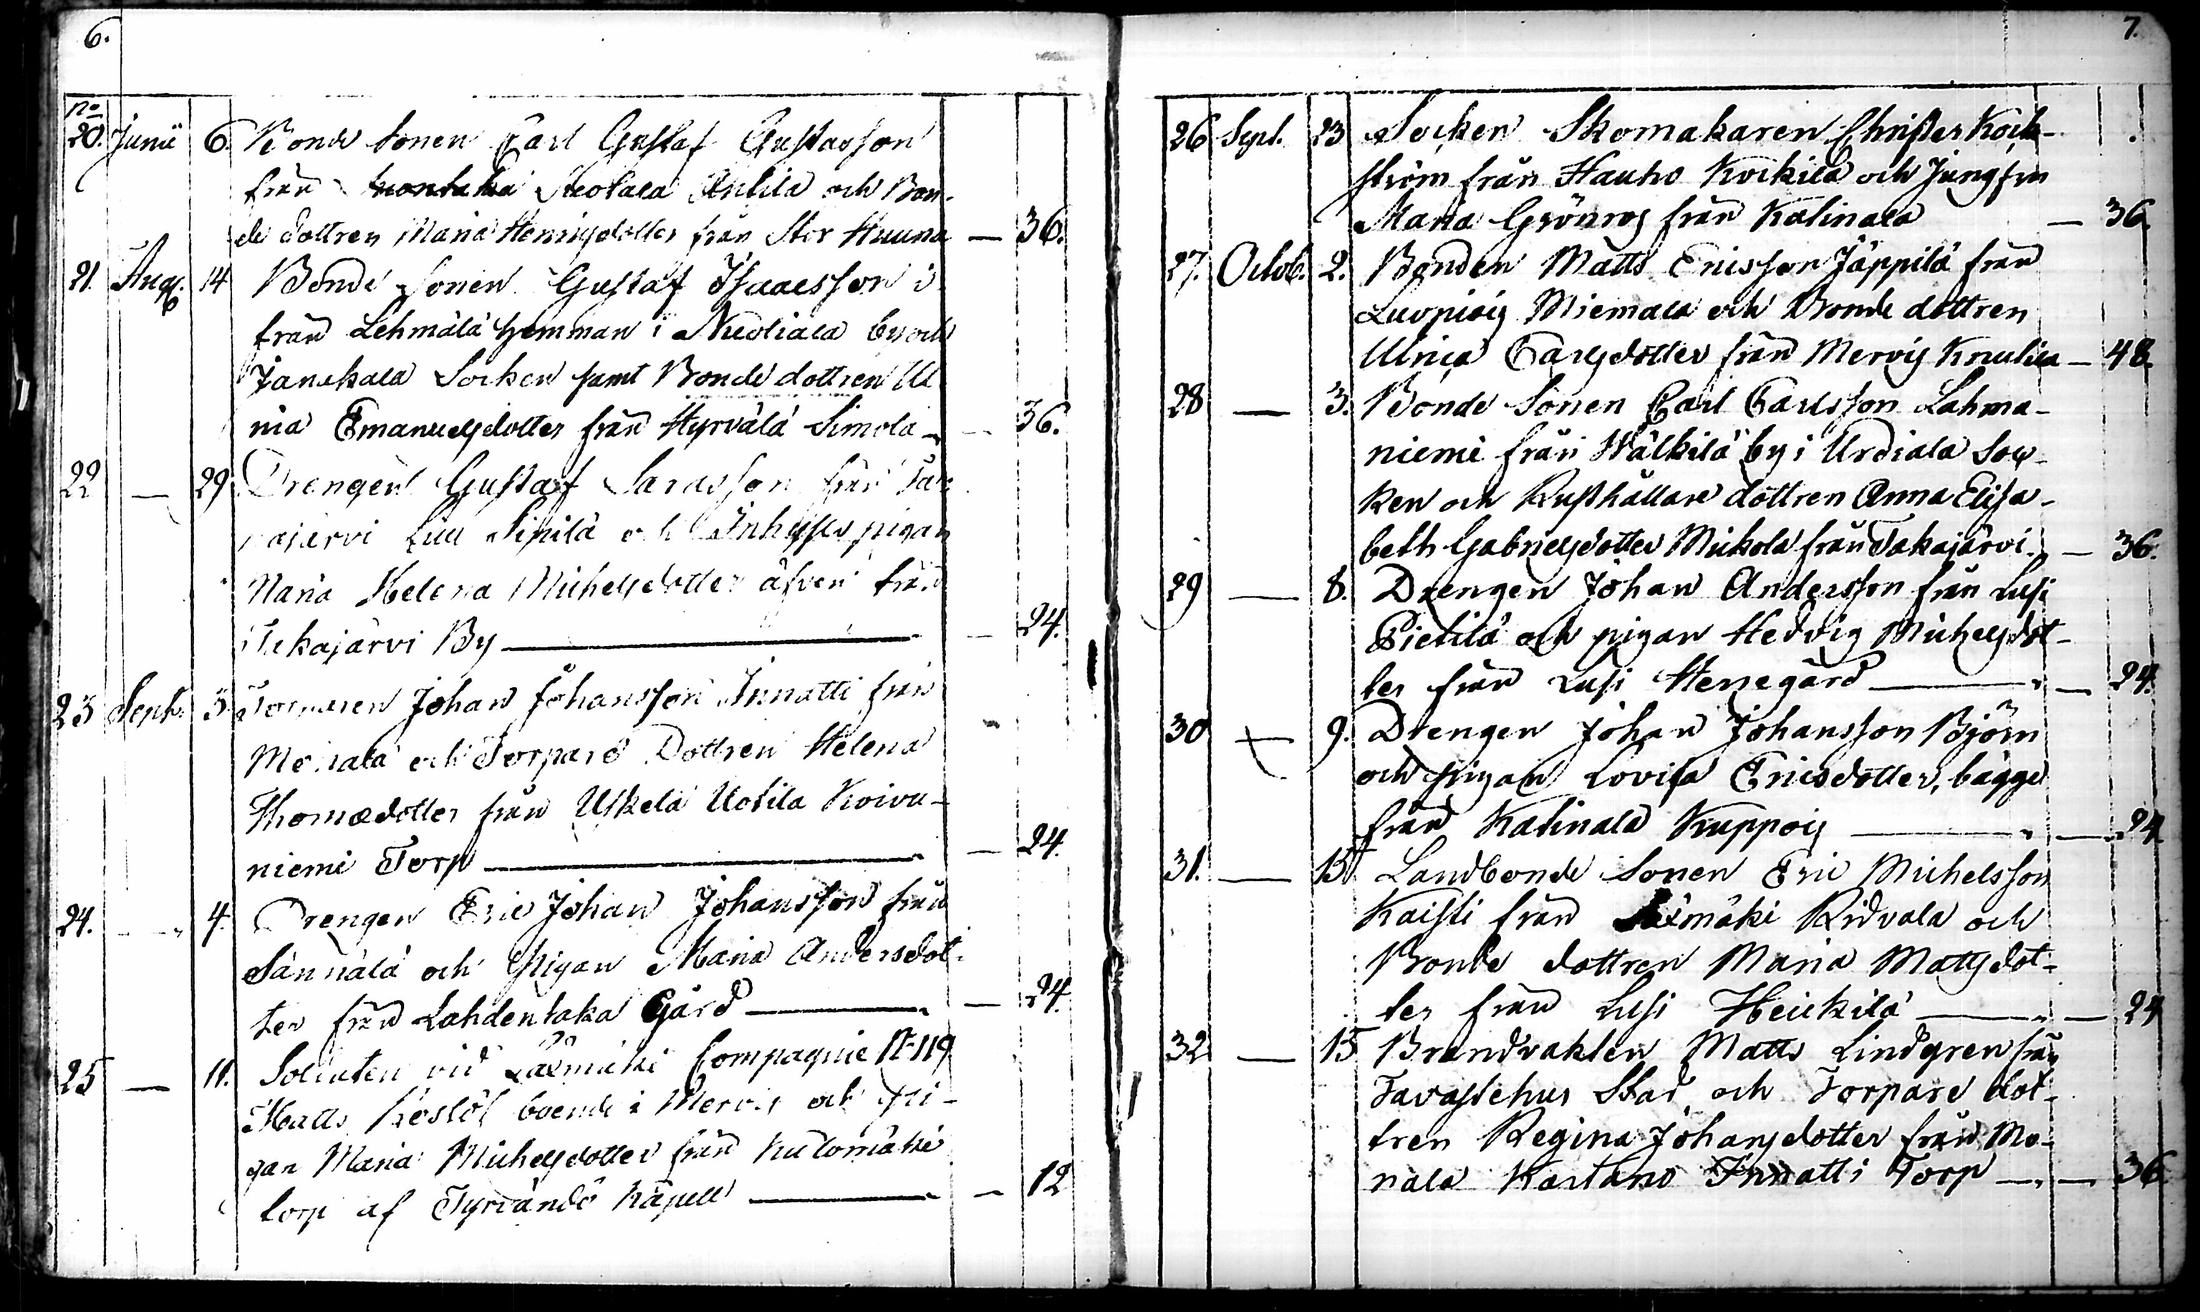 6.
No
20. Junii 6. Bonde Sonen Carl Gustaf Gustafsson
från Anttila och Bon-
de dottren Maria Henricsdotter från Stor Huuna — 36.
21. Aug. 14 Bonde Sonen Gustaf Isaacsson
från Lehmälä hemman i by och
Janakala Socken samt Bonde dottren Ul
rica Emanuelsdotter från Hyrvälä Simola — 36.
22 — 29. Drengen Gustaf från
Sipilä och Inhyses pigan
Maria Helena Michelsdotter äfven från
Takajärvi By — 24.
23 Sept. 3. Torparen Johan Johansson Innatti från
Monala och Torpare Dottren Helena
Thomædotter från Uskela Uotila Koivu-
niemi Torp — 24.
24. — 4. Drengen Eric Johan Johansson från
Sännälä och Pigan Maria Andersdot-
ter från Lahdentaka Gård — 24.
25 — 11. Soldaten vid Compagnie No 119
Matts boende i Mervis och Pi-
gan Maria Michelsdotter från Kutomäki
torp af Tyrvändö Kapell — 12
7.
26 Sept. 23 Socken Skomakaren Christer Köck-
ström från Hauho Kockila och Jungfru
Maria Grönroos från Katinala — 36.
27. Octob. 2. Bonden Matts Ericsson Jäppilä från
Miemala och Bonde dottren
Ulrica Carlsdotter från Mervis Knutila — 48.
28 — 3. Bonde Sonen Carl Carlsson Lahma-
niemi från Wälkilä by i Urdiala Soc-
ken och Rusthållare dottren Anna Elisa-
beth Gabrielsdotter Mickola från Takajärvi — 36.
29 — 8. Drengen Johan Andersson från Lusi
Pietilä och pigan Hedvig Michelsdot-
ter från Lusi Herregård — 24.
30 — 9. Drengen Johan Johansson Björn
och pigan Lovisa Ericsdotter, bägge
från Katinala Kuppois — 24
31. — 15. Landbonde Sonen Eric Michelsson
Kaisti från Ridvala och
Bonde dottren Maria Mattsdot-
ter från Lusi Heickilä — 24
32 — 15 Brandvakten Matts Lindgren från
Tavastehus Stad och Torpare dot-
tren Regina Johansdotter från Mo-
nala Kartano Innatti Torp — 36